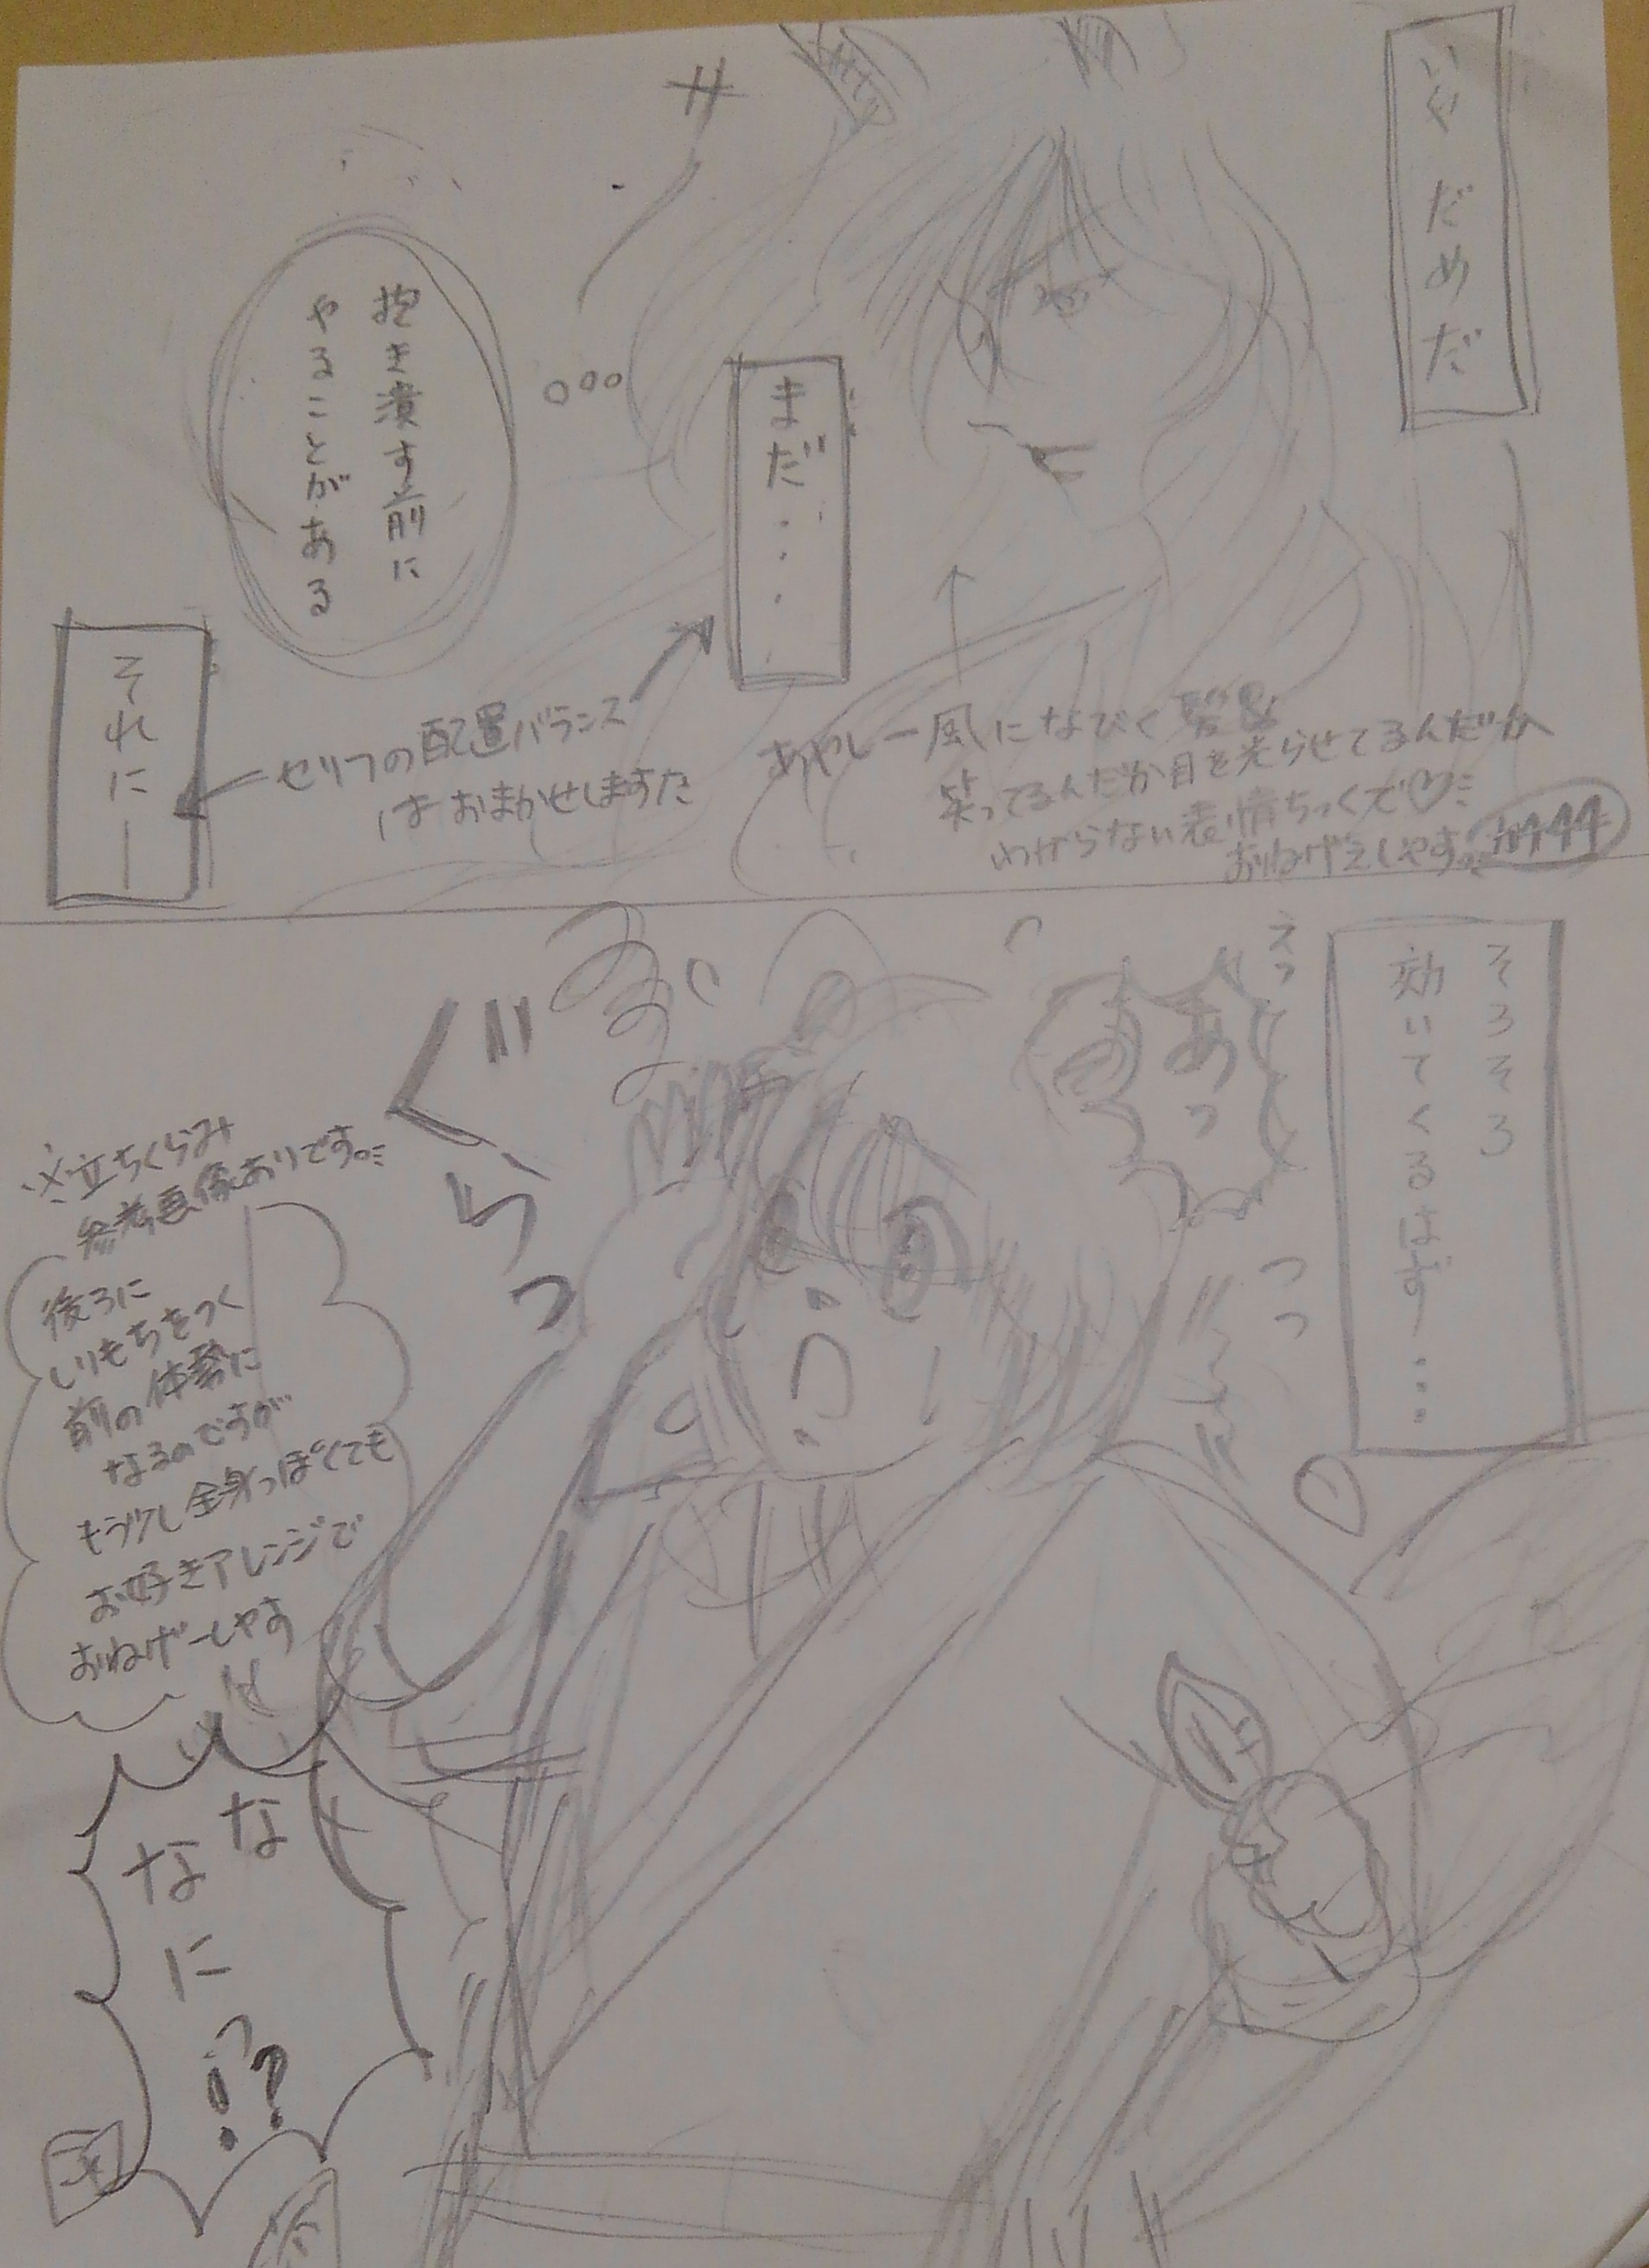 いやだめだ
まだ・・・
抱き潰す前に
やることがある
それに―
セリフの配置バランス
はおまかせしますた
あやしー風になびく髪&
笑ってるんだか目を光らせてるんだか
わからない表情ちっくで♡
おねげえしやす。
そろそろ
効いてくるはず…
えっ
あっ
ぐらっ
※立ちくらみ
参考画像ありです。
後ろに
しりもちをつく
前の体勢に
なるのですが
もう少し全身っぽくても
お好きアレンジで
おねげーしやす
な
なに
!?